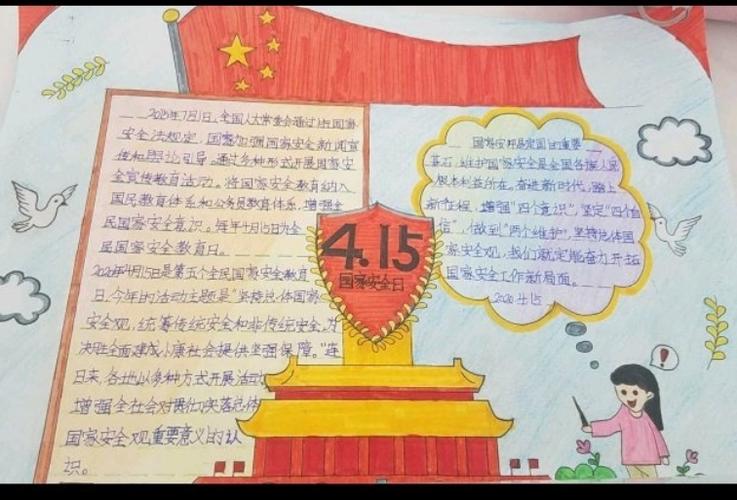 2015年7月1日,全国人大常委会通过的国家
安全法规定,国家加强国家安全新闻宣
传和舆论引导,通过多种形式开展国家安
全宣传教育活动。将国家安全教育纳入
国民教育体系和公务员教育体系,增强全
民国家安全意识。每年4月15日为全
民国家安全教育日。
2020年4月15日是第五个全民国家安全教育
日,今年的活动主题是"坚持总体国家
安全观,统筹传统安全和非传统安全,为
决胜全面建成小康社会提供坚强保障。"连
日来,各地以多种方式开展活动
增强全社会对贯彻落实总体
国家安全观重要意义的认
识。
4.15
国家安全日
国家安邦是定国的重要
基石,维护国家安全是全国各族人民
根本利益所在。奋进新时代,踏上
新征程,增强"四个意识",坚定"四个自
信",做到"两个维护",坚持总体国
家安全观,我们就定能奋力开拓
国家安全工作新局面。
2020.4.15
!